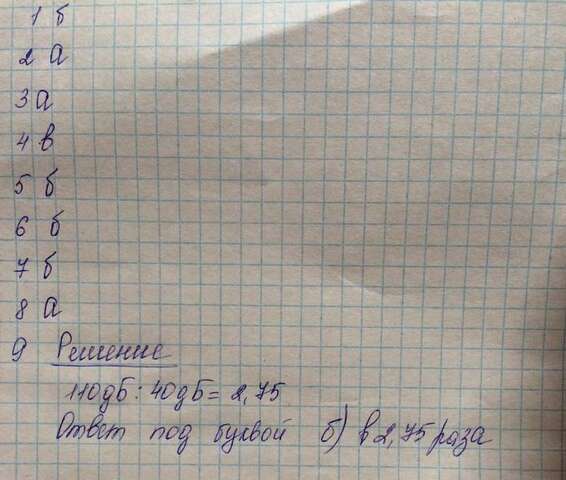 1 б
2 а
3 а
4 в
5 б
6 б
7 б
8 а
9 Решение
110дБ : 40дБ = 2,75
Ответ под буквой б) в 2,75 раза